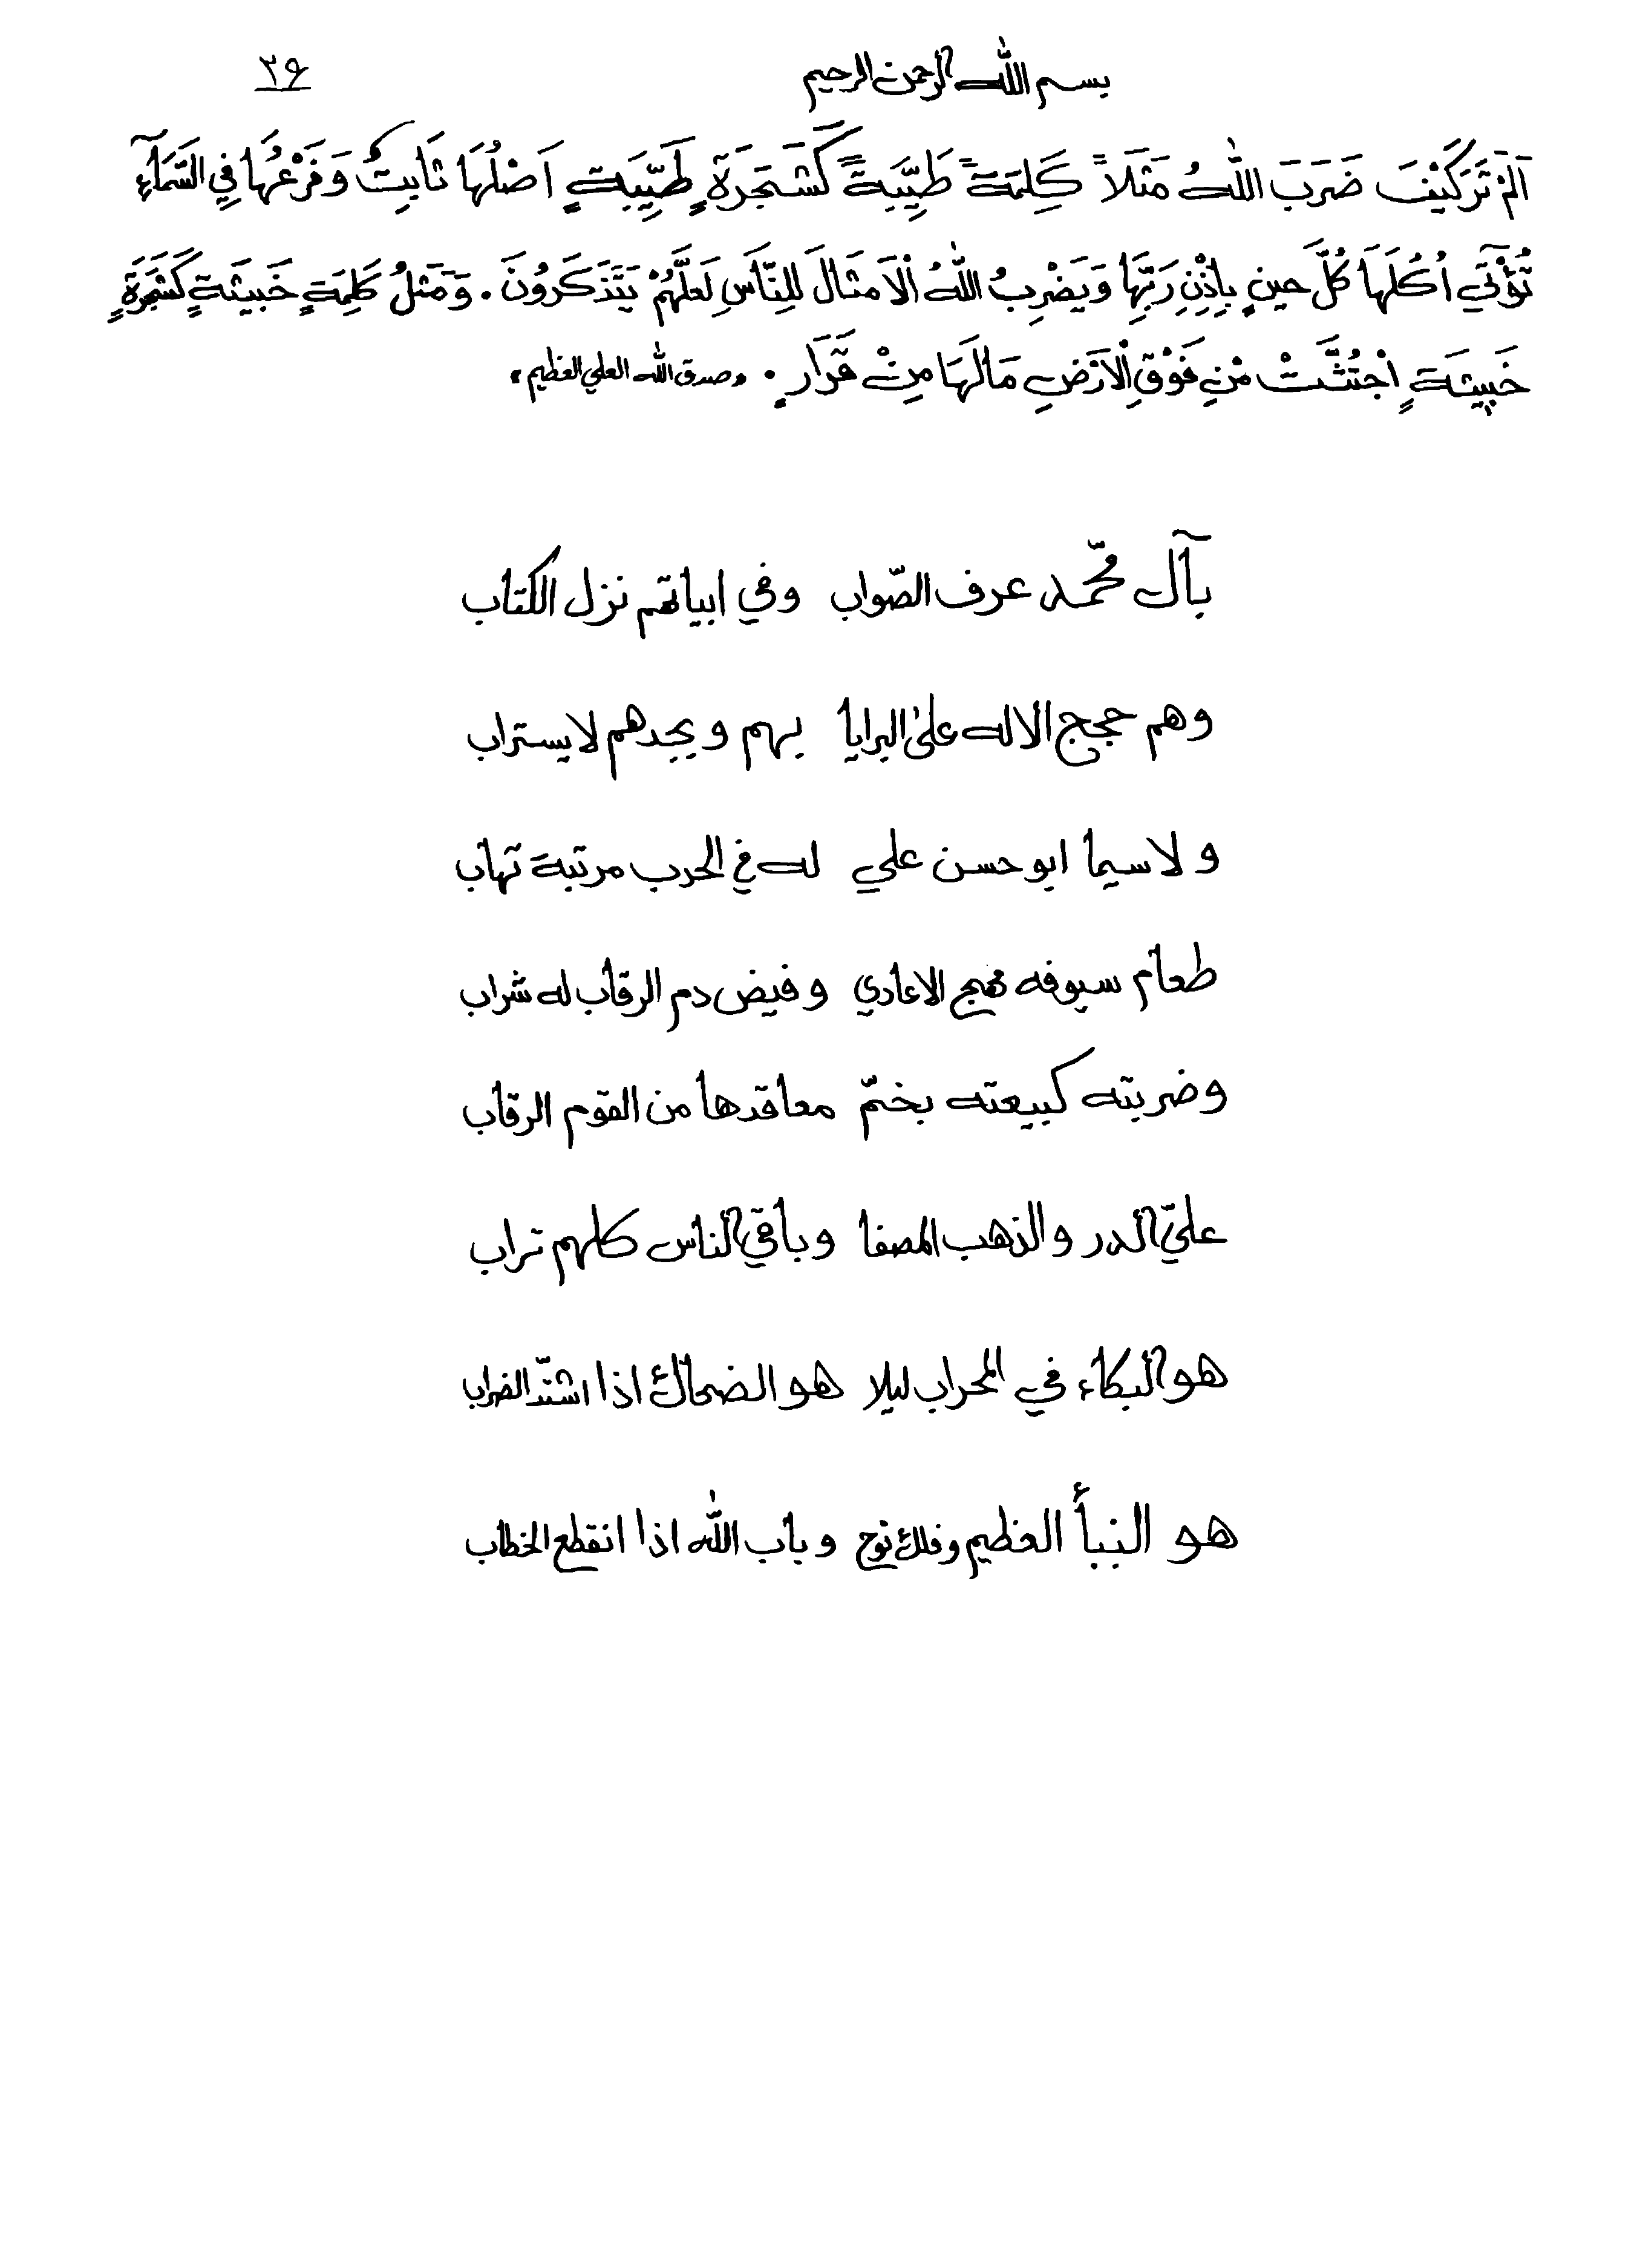 بسم الله الرحمن الرحيم ٢۶
اَلَمْ تَرَ كَيْفَ ضَرَبَ اللهُ مَثَلَاً كَلِمَةً طَيِّبَةً كَشَجَرَةٍ طَيِّبَةٍ اَصْلُهَا ثَابِتٌ وَفَرْعُهَا فِي السَّمَآءِ
تُؤْتَي اُكُلَهَا كُلَّ حينٍ بِاِذْنِ رَبِّهَا وَيَضْرِبُ اللهُ اْلاَمثَالَ لِلنَّاسِ لَعَلَّهُمْ يَتَذَكَرُونَ . وَمَثَلُ كَلِمَةٍ خَبيثَةٍ كَشَجَرَةٍ
خَبيثَةٍ اِجْتُثَّتْ مْنِ فَوْقِ اْلاَرْضِ مَالَهَا مِنْ قَرَارٍ . «صدق الله العلي العظيم»
بآل محّمد عرف الصّواب وفي ابياتهم نزل الكتاب
وهم حجج الاله على البرايا بهم وبجدهم لا يستراب
ولاسيما ابو حسن علي له في الحرب مرتبة تهاب
طعام سيوفه مهج الاعادي وفيض دم الرقاب له شراب
وضربته كبيعته بخمّ معاقدها من القوم الرقاب
عليّ الدر والذهب المصفا وباقي الناس كلهم تراب
هو البكاء في المحراب ليلا هو الضحاك اذا اشتدّ الضراب
هو النبأ العظيم وفلك نوح وباب الله اذا انقطع الخطاب